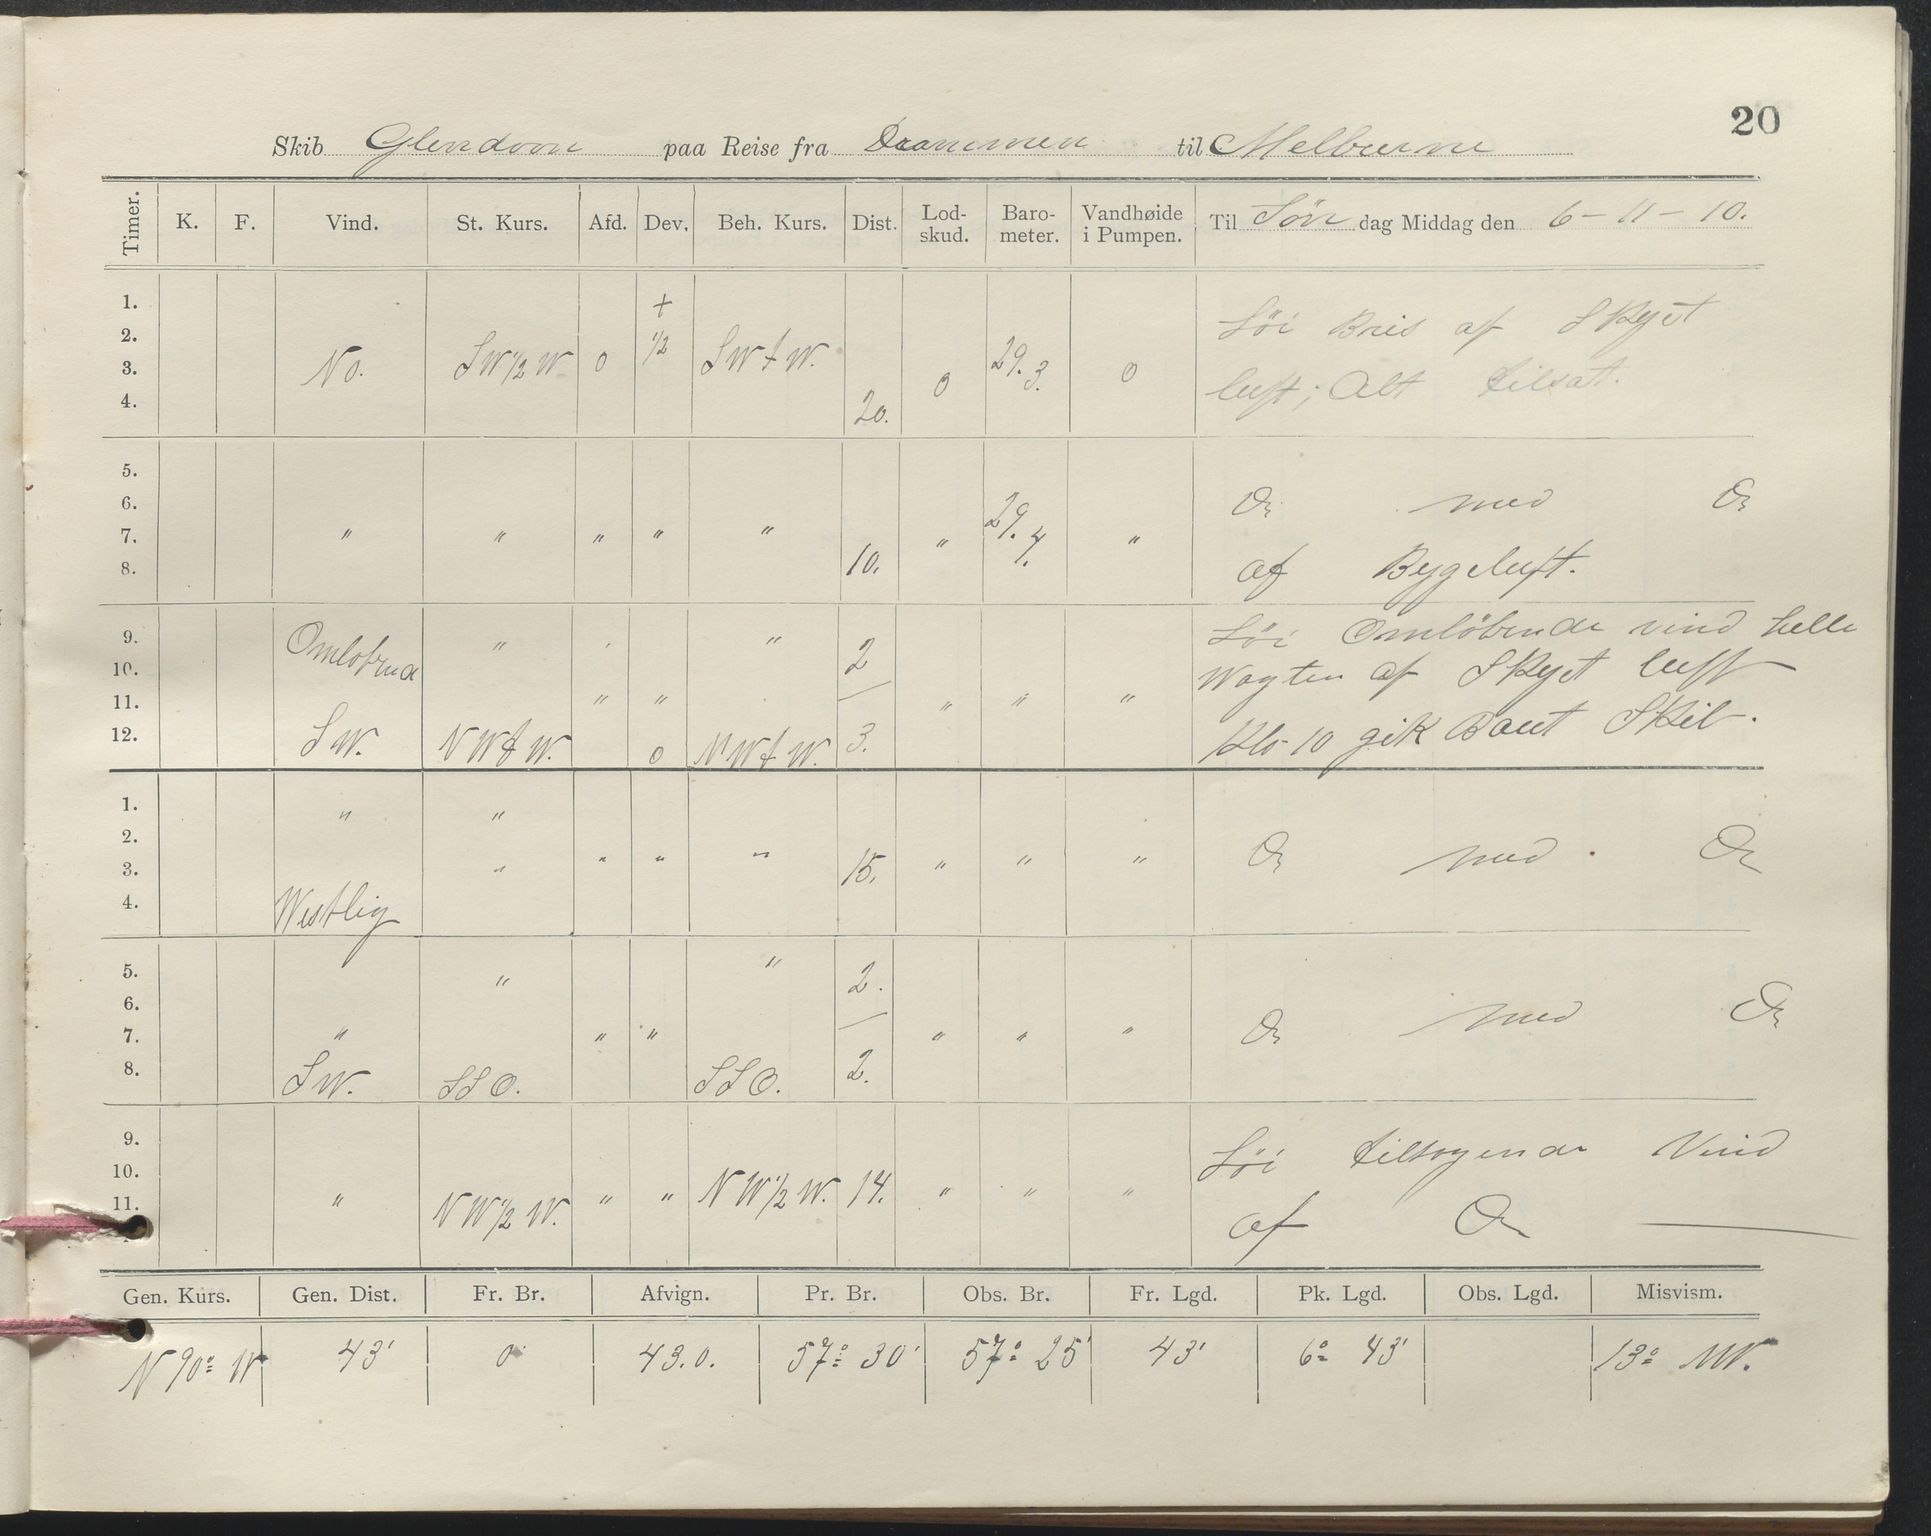 20
Skib Glendoon paa Reise fra Drammen til Melburne
Timer. K. F. Vind. St. Kurs. Afd. Dev. Beh. Kurs. Dist. Lod-skud. Baro-meter. Vandhøide i Pumpen. Til Søn dag Middag den 6-11-10.
1. +
2. 1/2 Løi Bris af Skyet
3. No. SW 1/2 W 0 SW t W. 0 29.3. 0
4. 20. luft; Alt tilsat.
5.
6. Do med Do
7. " " " " " " 29.4. "
8. 10. af Bygeluft.
9. Omløbende " " " 2 Løi Omløbende vind helle
10. Wagten af Skyet luft
11. " " " " "
12. SW. NW t W. 0 NW t W. 3. Klo 10 gik Baut Skib.
1. " "
2.
3. " " " " 15. " " " Do med Do
4. Westlig
5. " " 2.
6.
7. " " " " " " Do med Do
8. SW. SSO. SSO. 2.
9. Løi tiltagende Vind
10.
11. " NW 1/2 W. " " NW 1/2 W. 14. " " "
af Do
Gen. Kurs. Gen. Dist. Fr. Br. Afvign. Pr. Br. Obs. Br. Fr. Lgd. Pk. Lgd. Obs. Lgd. Misvism.
N 90° W 43' 0 43.0. 57° 30' 57° 25' 43' 6° 43' 13° NW.